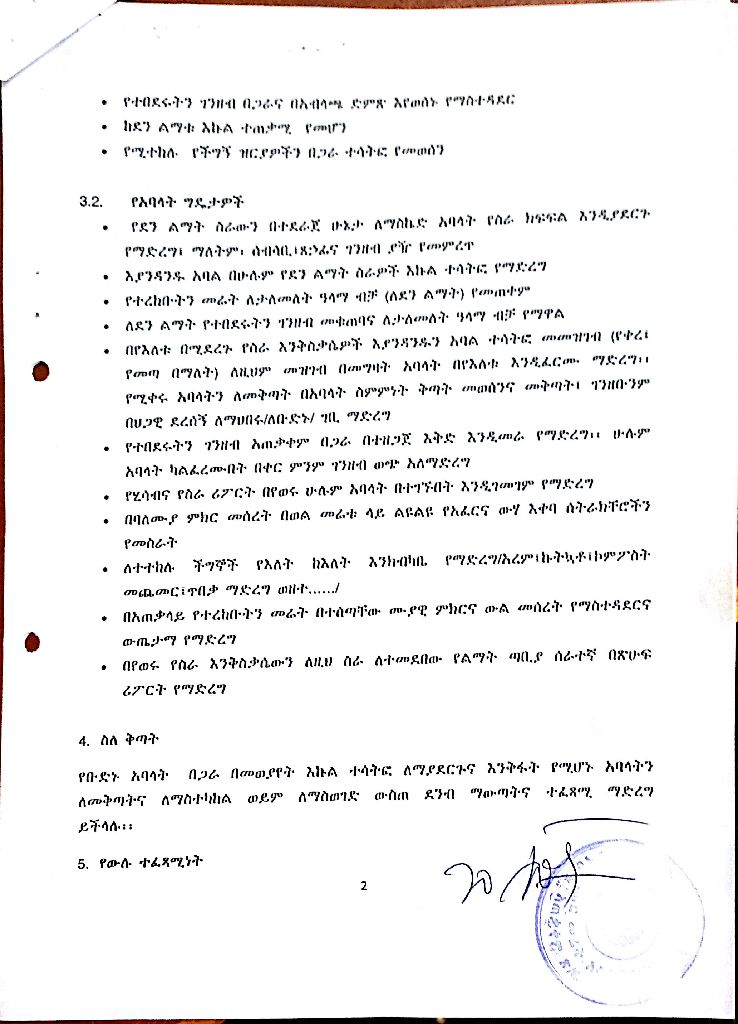 • የተበደሩትን ገንዘብ በጋራና በአብላጫ ድምጽ እየወሰኑ የማስተዳደር
• ከደን ልማቱ እኩል ተጠቃሚ የመሆን
• የሚተከሉ የችግኝ ዝርያዎችን በጋራ ተሳትፎ የመወሰን
3.2. የአባላት ግዴታዎች
• የደን ልማት ስራውን በተደራጀ ሁኔታ ለማስኬድ አባላት የስራ ክፍፍል እንዲያደርጉ
የማድረግ፤ ማለትም፡ ሰብሳቢ፤ጸኃፊና ገንዘብ ያዥ የመምረጥ
• እያንዳንዱ አባል በሁሉም የደን ልማት ስራዎች እኩል ተሳትፎ የማድረግ
• የተረከቡትን መሬት ለታለመለት ዓላማ ብቻ (ለደን ልማት) የመጠቀም
• ለደን ልማት የተበደሩትን ገንዘብ መቆጠባና ለታለመለት ዓላማ ብቻ የማዋል
• በየእለቱ በሚደረጉ የስራ እንቅስቃሴዎች እያንዳንዱን አባል ተሳትፎ መመዝገብ (የቀረ፤
የመጣ በማለት) ለዚህም መዝገብ በመግባት አባላት በየእለቱ እንዲፈርሙ ማድረግ፡፡
የሚቀሩ አባላትን ለመቅጣት በአባላት ስምምነት ቅጣት መወሰንና መቅጣት፤ ገንዘቡንም
በህጋዊ ደረሰኝ ለማህበሩ/ለቡድኑ/ ገቢ ማድረግ
• የተበደሩትን ገንዘብ አጠቃቀም በጋራ በተዘጋጀ እቅድ እንዲመራ የማድረግ፡፡ ሁሉም
አባላት ካልፈረሙበት በቀር ምንም ገንዘብ ወጭ አለማድረግ
• የሂሳብና የስራ ሪፖርት በየወሩ ሁሉም አባላት በተገኙበት እንዲገመገም የማድረግ
• በባለሙያ ምክር መሰረት በወል መሬቱ ላይ ልዩልዩ የአፈርና ውሃ እቀባ ስትራክቸሮችን
የመስራት
• ለተተከሉ ችግኞች የእለት ከእለት እንክብካቤ የማድረግ/አረም፤ኩትኳቶ፤ኮምፖስት
መጨመር፤ጥበቃ ማድረግ ወዘተ....../
• በአጠቃላይ የተረከቡትን መሬት በተሰጣቸው ሙያዊ ምክርና ውል መሰረት የማስተዳደርና
ውጤታማ የማድረግ
• በየወሩ የስራ እንቅስቃሴውን ለዚህ ስራ ለተመደበው የልማት ጣቢያ ሰራተኛ በጽሁፍ
ሪፖርት የማድረግ
4. ስለ ቅጣት
የቡድኑ አባላት በጋራ በመወያየት እኩል ተሳትፎ ለማያደርጉና እንቅፋት የሚሆኑ አባላትን
ለመቅጣትና ለማስተካከል ወይም ለማስወገድ ውስጠ ደንብ ማውጣትና ተፈጻሚ ማድረግ
ይችላሉ፡፡
5. የውሉ ተፈጻሚነት
2